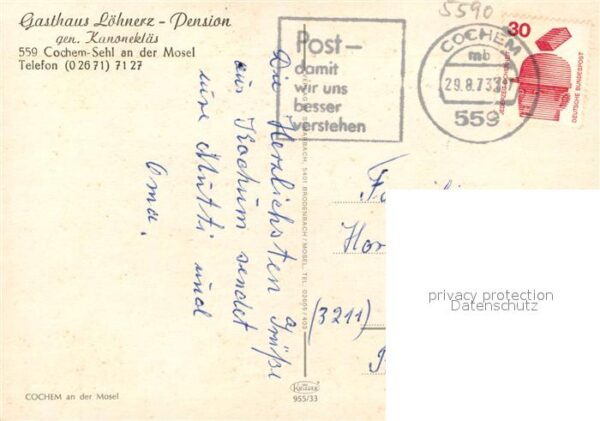 Gasthaus Löhnerz - Pension
gen. Kanonekläs
559 Cochem-Sehl an der Mosel
Telefon (0 26 71) 71 27
Post-
damit
wir uns
besser
verstehen
5590
COCHEM
mb
29.8.73
559
30
DEUTSCHE BUNDESPOST
Die Herzlichsten Grüße
aus Kochum sendet
eure Mutti und
Oma.
5401 BRODENBACH / MOSEL, TEL. 02605/403
(3211)
privacy protection
Datenschutz
COCHEM an der Mosel
Krüger
955/33